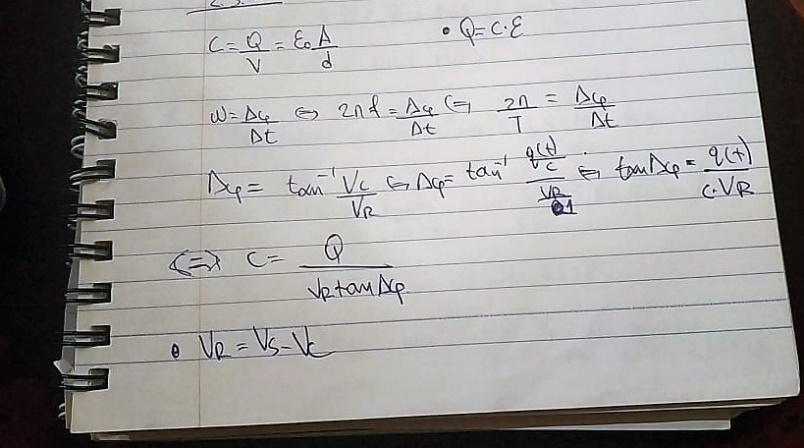 C = Q/V = ε₀ A/d • Q = C·ε
ω = Δφ/Δt ⇔ 2πf = Δφ/Δt ⇔ 2π/T = Δφ/Δt
Δφ = tan⁻¹ Vc/VR ⇔ Δφ = tan⁻¹ (q(t)/C)/(VR/1) ⇔ tanΔφ = q(t)/(C·VR)
⇔ C = Q/(VR tanΔφ)
• VR = VS - VC